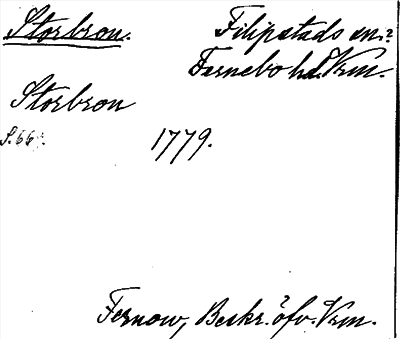 Storbron. Filipstads sn.?
Färnebo hd. Vrm.
Storbron
S. 66. 1779.
Fernow, Beskr. öfv. Vrm.